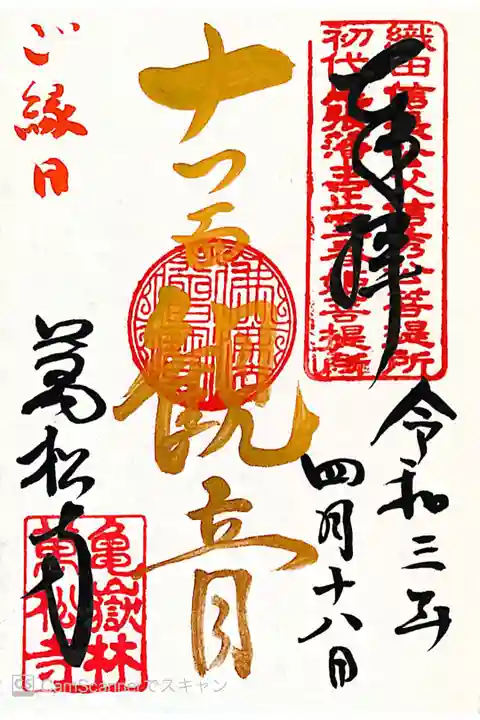 織田信長公父信秀公菩提所
初代尾張藩主正室春姫菩提所
奉拝
令和三年
四月十八日
十一面観音
ご縁日
萬松寺
亀嶽林
萬松寺
CS CamScannerでスキャン